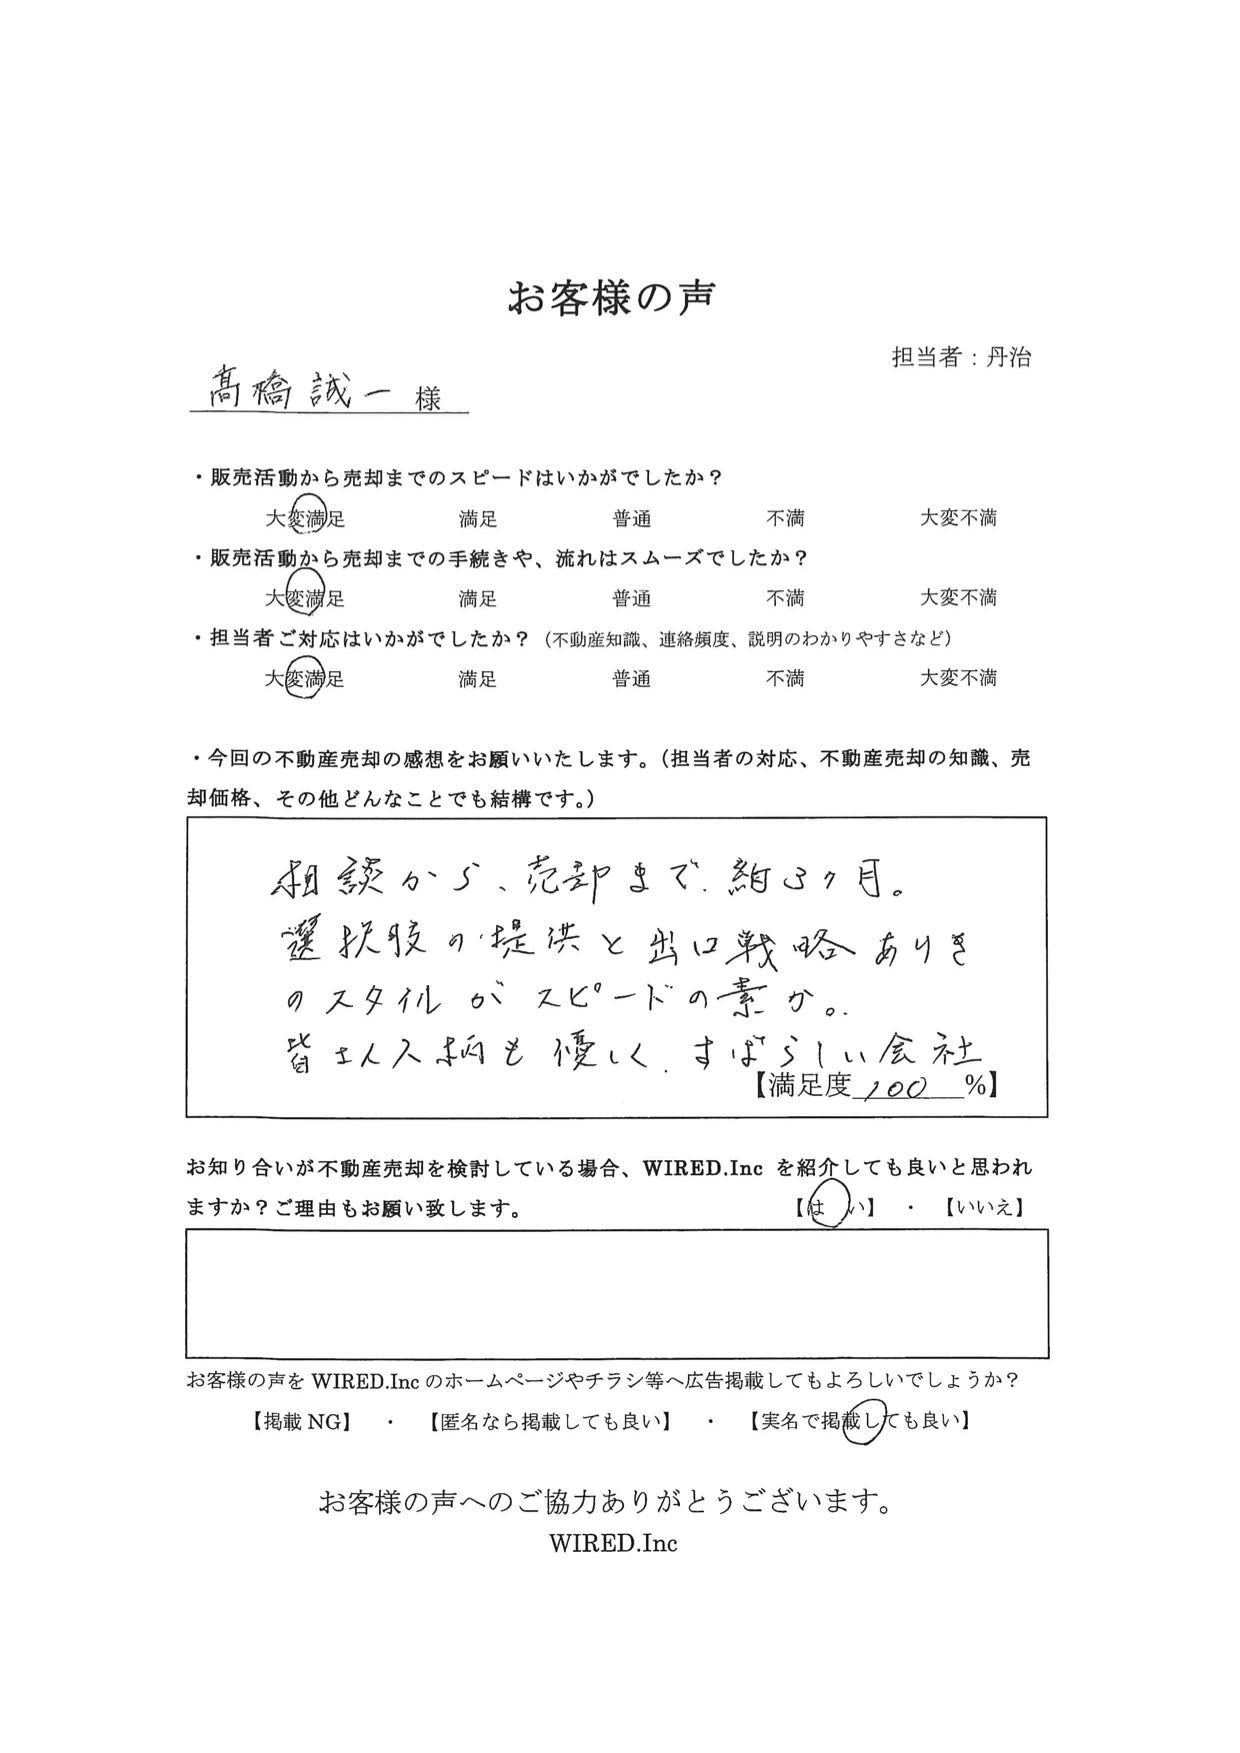 お客様の声
担当者：丹治
髙橋 誠一 様
・販売活動から売却までのスピードはいかがでしたか？
大変満足 満足 普通 不満 大変不満
・販売活動から売却までの手続きや、流れはスムーズでしたか？
大変満足 満足 普通 不満 大変不満
・担当者ご対応はいかがでしたか？（不動産知識、連絡頻度、説明のわかりやすさなど）
大変満足 満足 普通 不満 大変不満
・今回の不動産売却の感想をお願いいたします。（担当者の対応、不動産売却の知識、売
却価格、その他どんなことでも結構です。）
相談から、売却まで、約3ヶ月。
選択肢の提供と出口戦略ありき
のスタイルがスピードの素か。
皆さん人柄も優しく、すばらしい会社
【満足度 100 %】
お知り合いが不動産売却を検討している場合、WIRED.Inc を紹介しても良いと思われ
ますか？ご理由もお願い致します。 【はい】 ・ 【いいえ】
お客様の声を WIRED.Inc のホームページやチラシ等へ広告掲載してもよろしいでしょうか？
【掲載 NG】 ・ 【匿名なら掲載しても良い】 ・ 【実名で掲載しても良い】
お客様の声へのご協力ありがとうございます。
WIRED.Inc